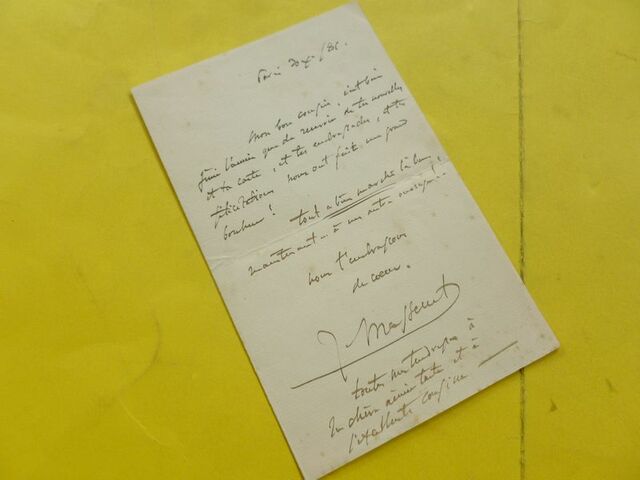 Paris
Mon bon cousin, c'est bien
finir l'année que de recevoir de tes nouvelles
et ta carte, et tes embrassades, et tes
félicitations nous ont fait un grand
bonheur!
tout a bien marché là-bas,
maintenant.. à un autre ouvrage!..
nous t'embrassons
de coeur.
J. Massenet
toutes mes tendresses à
ta chère tante et à
l'excellente cousine